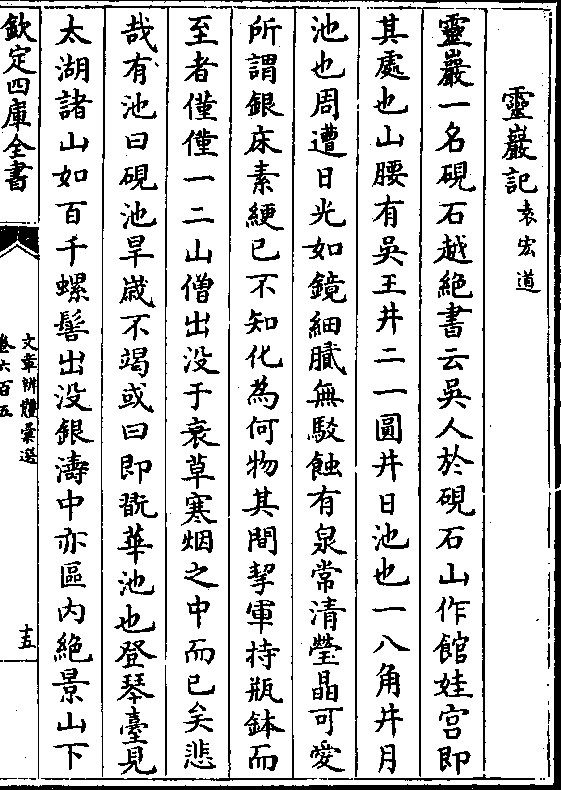 靈巖記袁宏道
靈巖一名硯石越絶書云吳人於硯石山作館娃宫即
其處也山腰有吳王井二一圓井日池也一八角井月
池也周遭日光如鏡細膩無駁蝕有泉常清瑩晶可愛
所謂銀床素綆已不知化為何物其間挈軍持瓶鉢而
至者僅僅一二山僧出没于衰草寒烟之中而已矣悲
哉有池曰硯池旱歳不竭或曰即翫華池也登琴臺見
太湖諸山如百千螺髻出没銀濤中亦區内絶景山下
欽定四庫全書
文章辨體彚選
卷六百五
十五